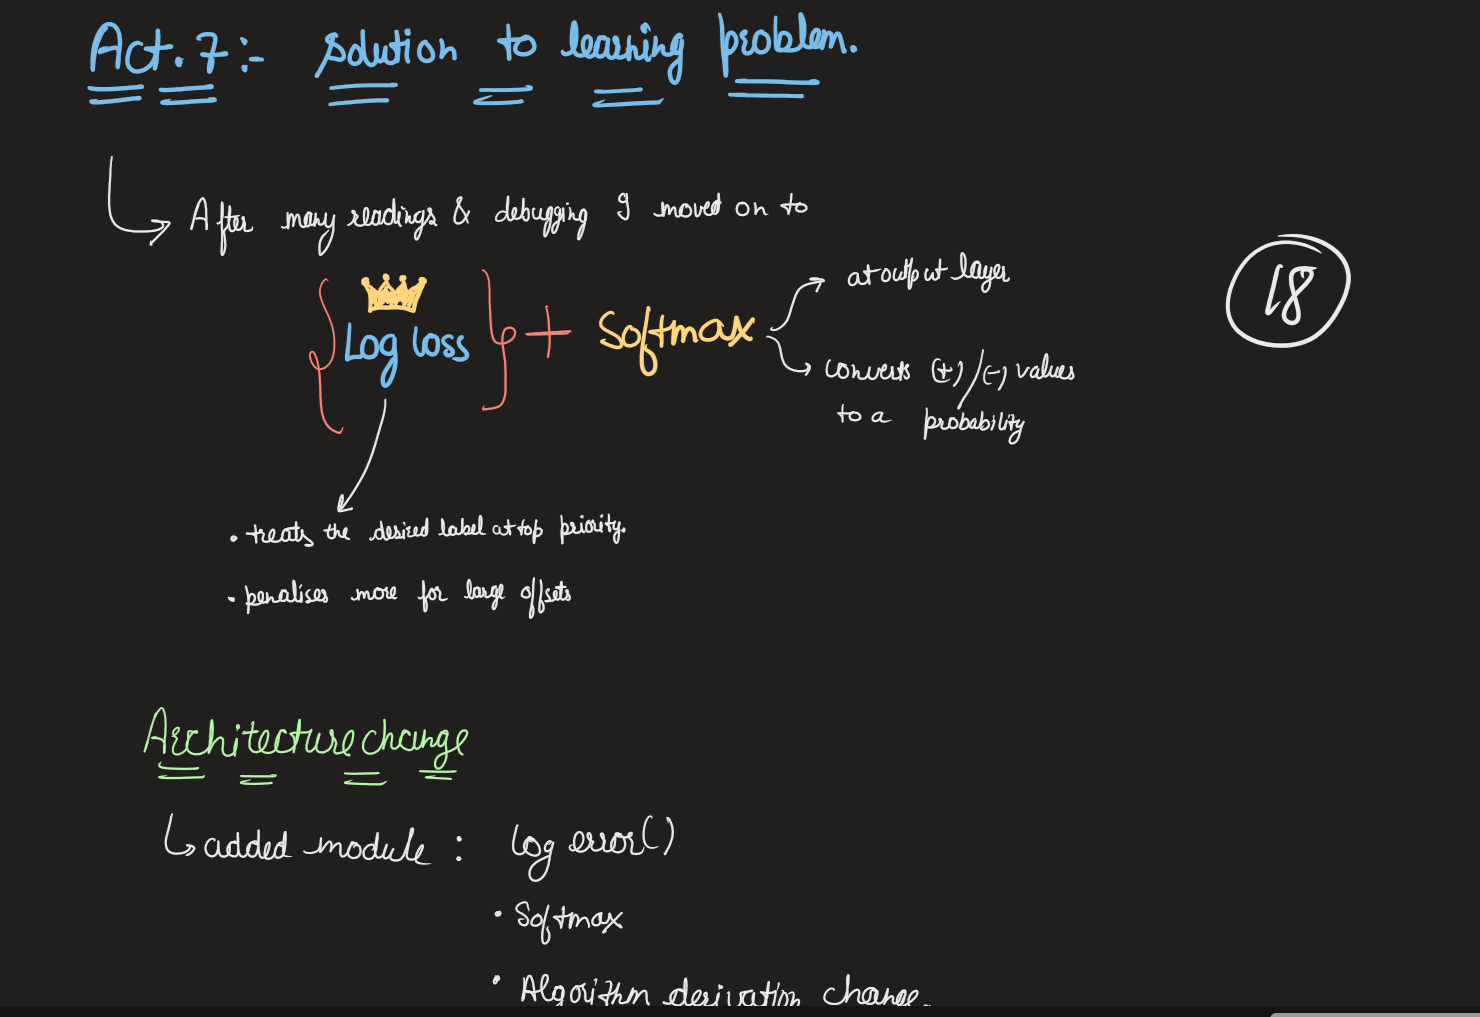 Act. 7 :- solution to learning problem.
After many readings & debugging I moved on to
{ Log loss } + Softmax
at output layer
converts (+)/(-) values
to a probability
18
• treats the desired label at top priority.
• penalises more for large offsets
Architecture change
added module : log error()
• Softmax
• Algorithm derivation change.